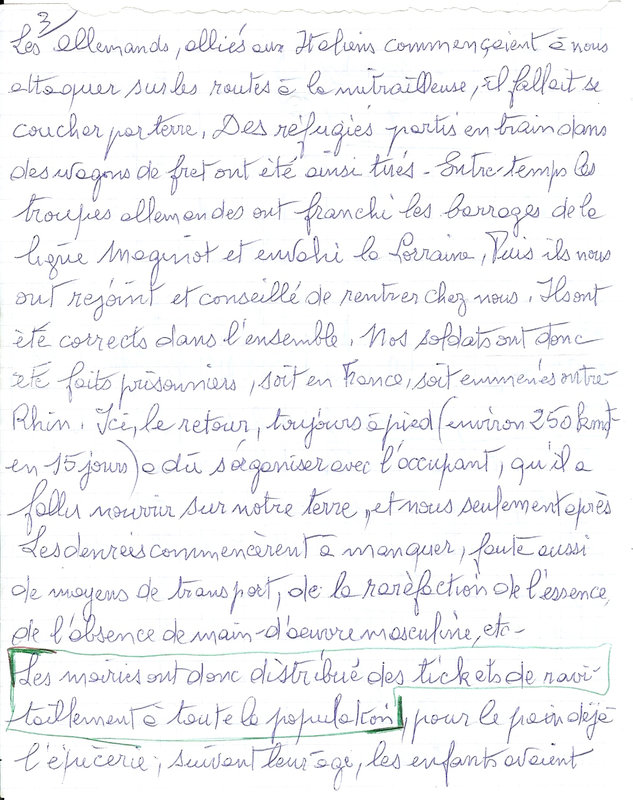 3/
Les allemands, alliés aux Italiens commençaient à nous
attaquer sur les routes à la mitrailleuse, il fallait se
coucher par terre. Des réfugiés partis en train dans
des wagons de fret ont été ainsi tirés - Entre-temps les
troupes allemandes ont franchi les barrages de la
ligne Maginot et envahi la Lorraine, Puis ils nous
ont rejoint et conseillé de rentrer chez nous. Ils ont
été corrects dans l'ensemble. Nos soldats ont donc
été faits prisonniers, soit en France, soit emmenés outre-
Rhin. Ici, le retour, toujours à pied (environ 250 kms
en 15 jours) a dû s'organiser avec l'occupant, qu'il a
fallu nourrir sur notre terre, et nous seulement après
Les denrées commencèrent à manquer, faute aussi
de moyens de transport, de la raréfaction de l'essence,
de l'absence de main-d'oeuvre masculine, etc-
Les mairies ont donc distribué des tickets de ravi-
taillement à toute la population, pour le pain déjà
l'épicerie, suivant leur âge, les enfants avaient